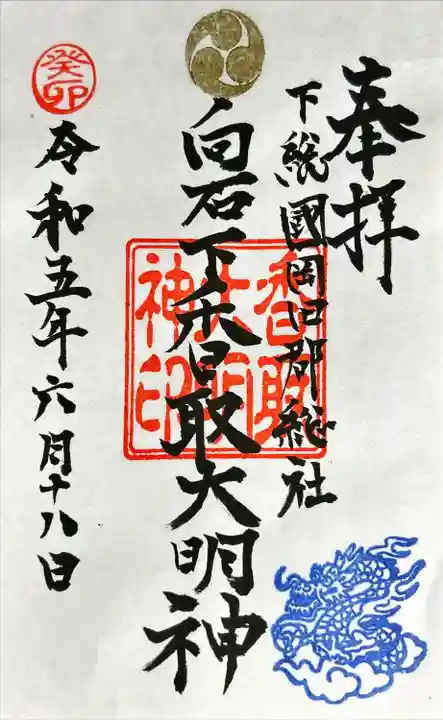 奉拝
下総國岡田郡総社
白石下香取大明神
香取
大明
神印
令和五年六月十八日
癸卯